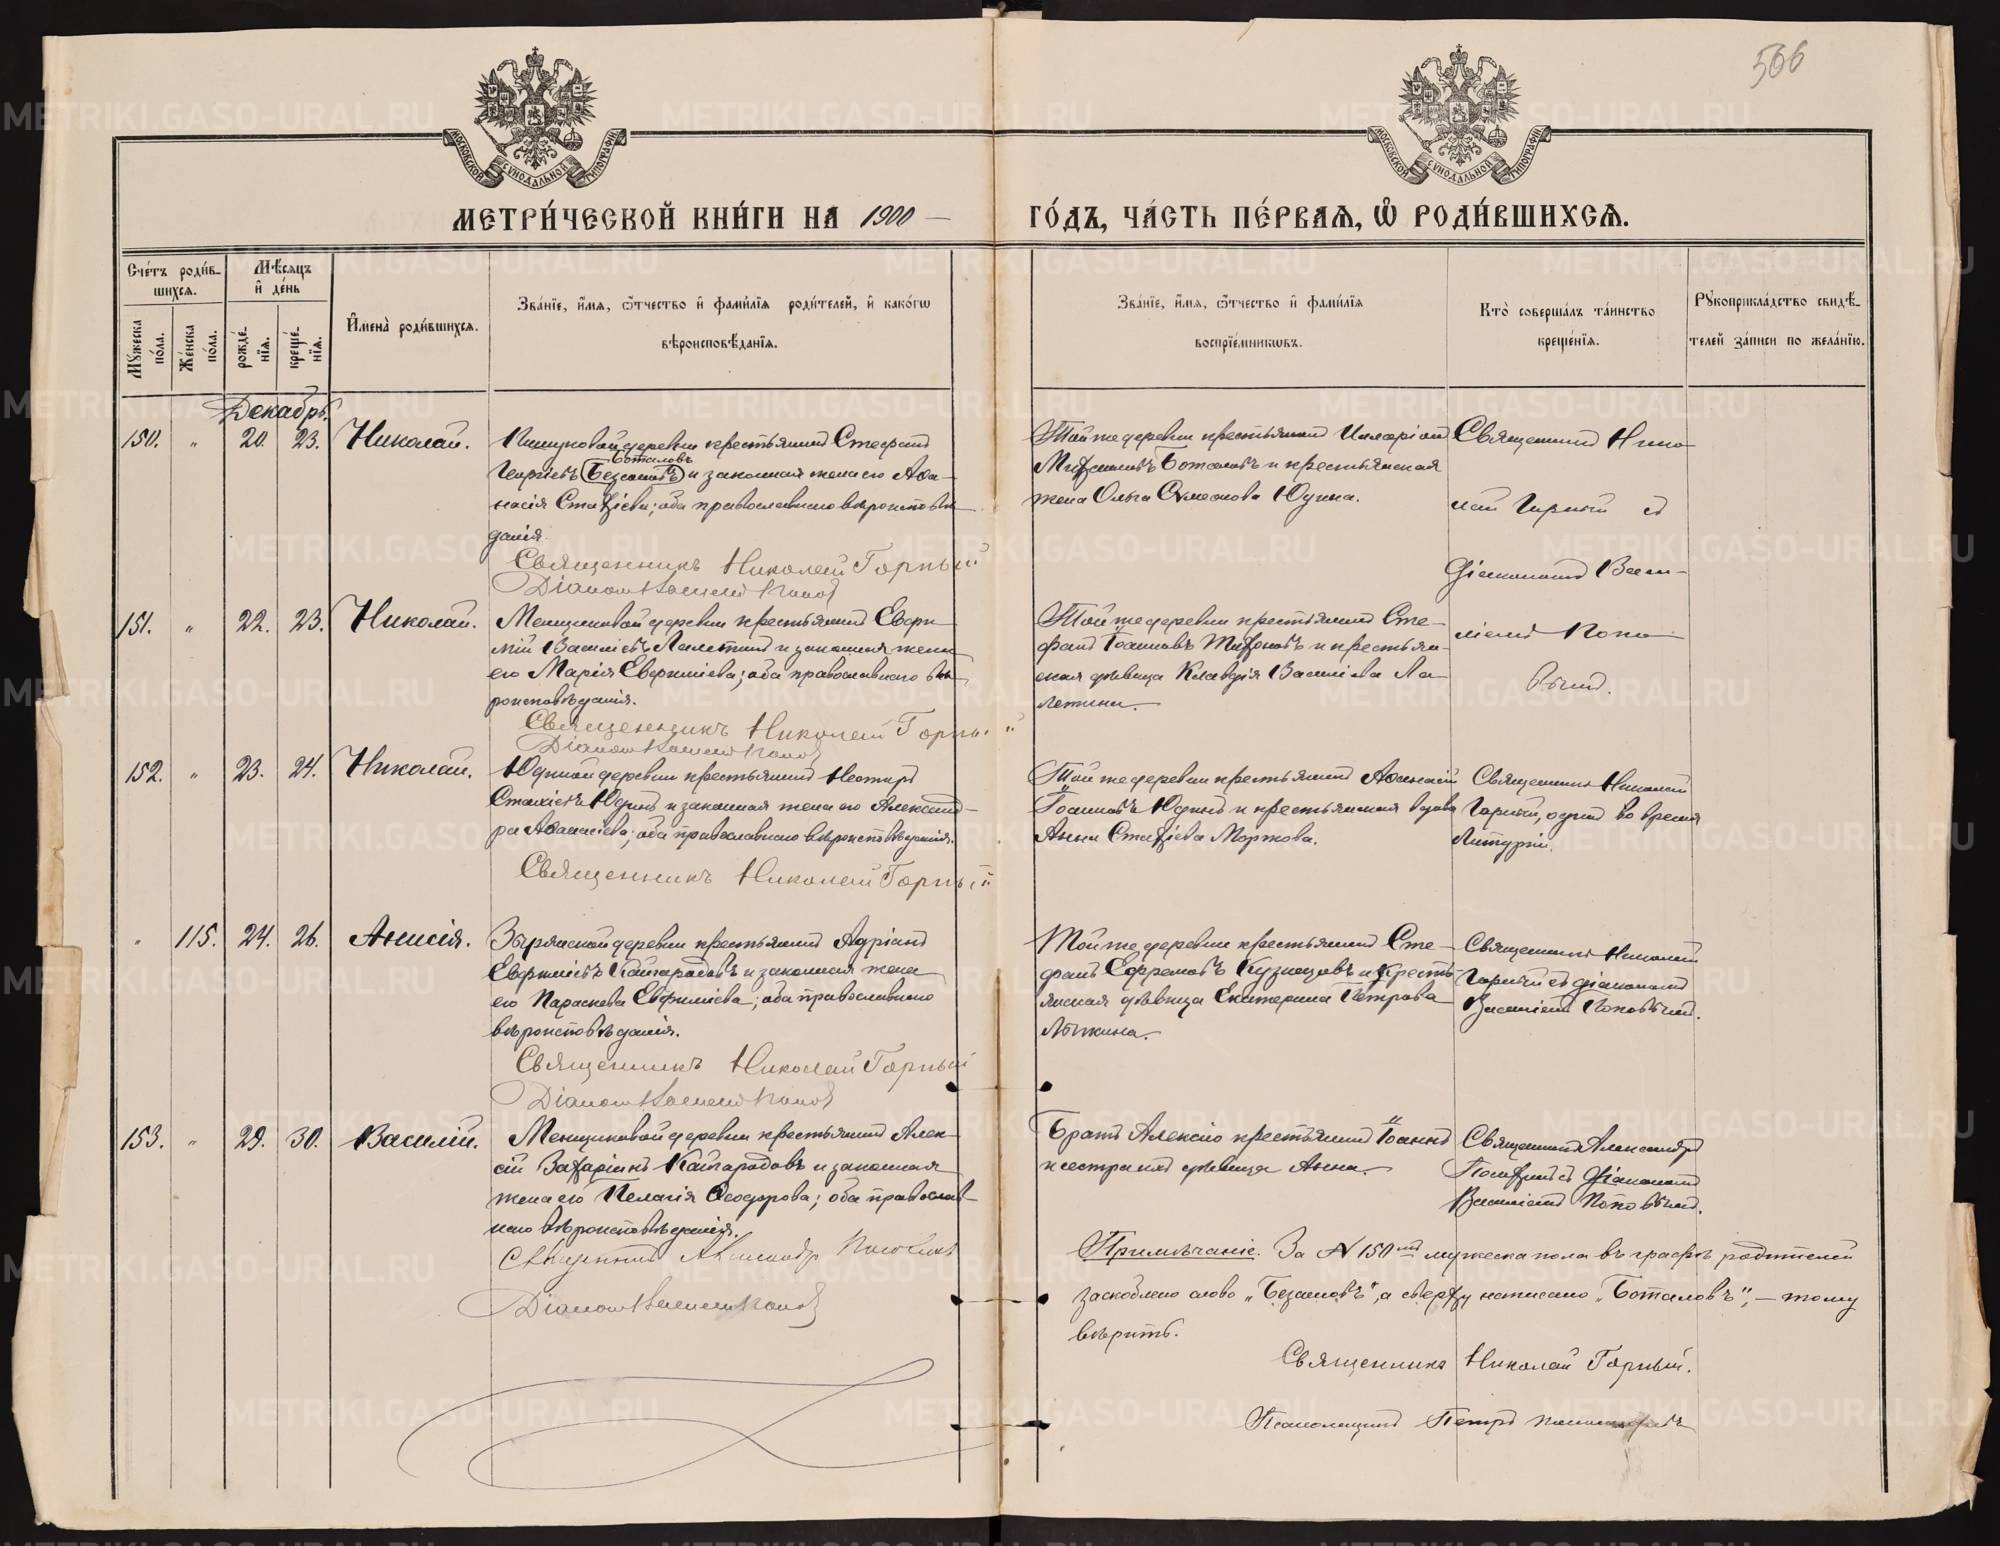 566
МОСКОВСКОЙ СУНОДАЛЬНОЙ ТИПОГРАФІИ
МОСКОВСКОЙ СУНОДАЛЬНОЙ ТИПОГРАФІИ
МЕТРИ́ЧЕСКОЙ КНИ́ГИ НА 1900 — ГО́ДЪ, ЧА́СТЬ ПЕ́РВАѦ, Ѡ҆ РОДИ́ВШИХСѦ.
Сче́тъ роди́вшихсѧ.
Мꙋжеска по́ла.
Же́нска по́ла.
Мѣ́сѧцъ и҆ де́нь
рожде́нїѧ.
креще́нїѧ.
И҆мена̀ роди́вшихсѧ.
Зва́нїе, и҆́мѧ, ѻ҆́тчество и҆ фамі́лїѧ роди́телей, и҆ како́гѡ
вѣроисповѣ́данїѧ.
Зва́нїе, и҆́мѧ, ѻ҆́тчество и҆ фамі́лїѧ
воспрїе́мникѡвъ.
Кто̀ соверша́лъ та́инство
креще́нїѧ.
Рꙋкоприкла́дство свидѣ́-
телей за́писи по жела́нїю.
Декабрь.
150. „ 20. 23. Николай.
деревни крестьянинъ Стефанъ
Боталовъ
Георгіевъ (Безсоновъ) и законная жена его Аѳа-
насія Стахіева; оба православнаго вѣроисповѣ-
данія.
Священникъ Николай Горный
Діаконъ Василій Поповъ
Той же деревни крестьянинъ Иларіонъ
Боталовъ и крестьянская
жена Ольга Симеонова Юдина.
Священникъ Нико-
лай Горный съ
діакономъ Васи-
ліемъ Попо-
вымъ.
151. „ 22. 23. Николай.
Меньщиковой деревни крестьянинъ Евѳи-
мій Василіевъ Лалетинъ и законная жена
его Марія Евѳиміева; оба православнаго вѣ-
роисповѣданія.
Священникъ Николай Горный
Діаконъ Василій Поповъ
Той же деревни крестьянинъ Сте-
фанъ Іоанновъ Тихоновъ и крестьян-
ская дѣвица Клавдія Василіева Ла-
летина.
152. „ 23. 24. Николай.
Юдиной деревни крестьянинъ Несторъ
Стахіевъ Юдинъ и законная жена его Александ-
ра Аѳанасіева; оба православнаго вѣроисповѣданія.
Священникъ Николай Горный
Той же деревни крестьянинъ Аѳанасій
Іоанновъ Юдинъ и крестьянская вдова
Анна Стахіева Моркова.
Священникъ Николай
Горный, одинъ во время
Литургіи.
„ 115. 24. 26. Анисія.
Зырянской деревни крестьянинъ Адріанъ
Евѳиміевъ Кайгородовъ и законная жена
его Параскева Евфиміева; оба православнаго
вѣроисповѣданія.
Священникъ Николай Горный
Діаконъ Василій Поповъ
Той же деревни крестьянинъ Сте-
фанъ Ефремовъ Кузнецовъ и кресть-
янская дѣвица Екатерина Петрова
Лыкина.
Священникъ Николай
Горный съ діакономъ
Василіемъ Поповымъ.
153. „ 29. 30. Василій.
Меньщиковой деревни крестьянинъ Алек-
сій Захаріинъ Кайгородовъ и законная
жена его Пелагія Ѳеодорова; оба православ-
наго вѣроисповѣданія.
Священникъ Александръ
Діаконъ Василій Поповъ
Братъ Алексію крестьянинъ Іоаннъ
и сестра ихъ дѣвица Анна.
Священникъ Александръ
съ Діакономъ
Василіемъ Поповымъ.
Примѣчаніе. За № 150мъ мужеска пола въ графѣ родителей
заскоблено слово „Безсоновъ", а сверху написано „Боталовъ", — тому
вѣрить.
Священникъ Николай Горный.
Псаломщикъ Петръ